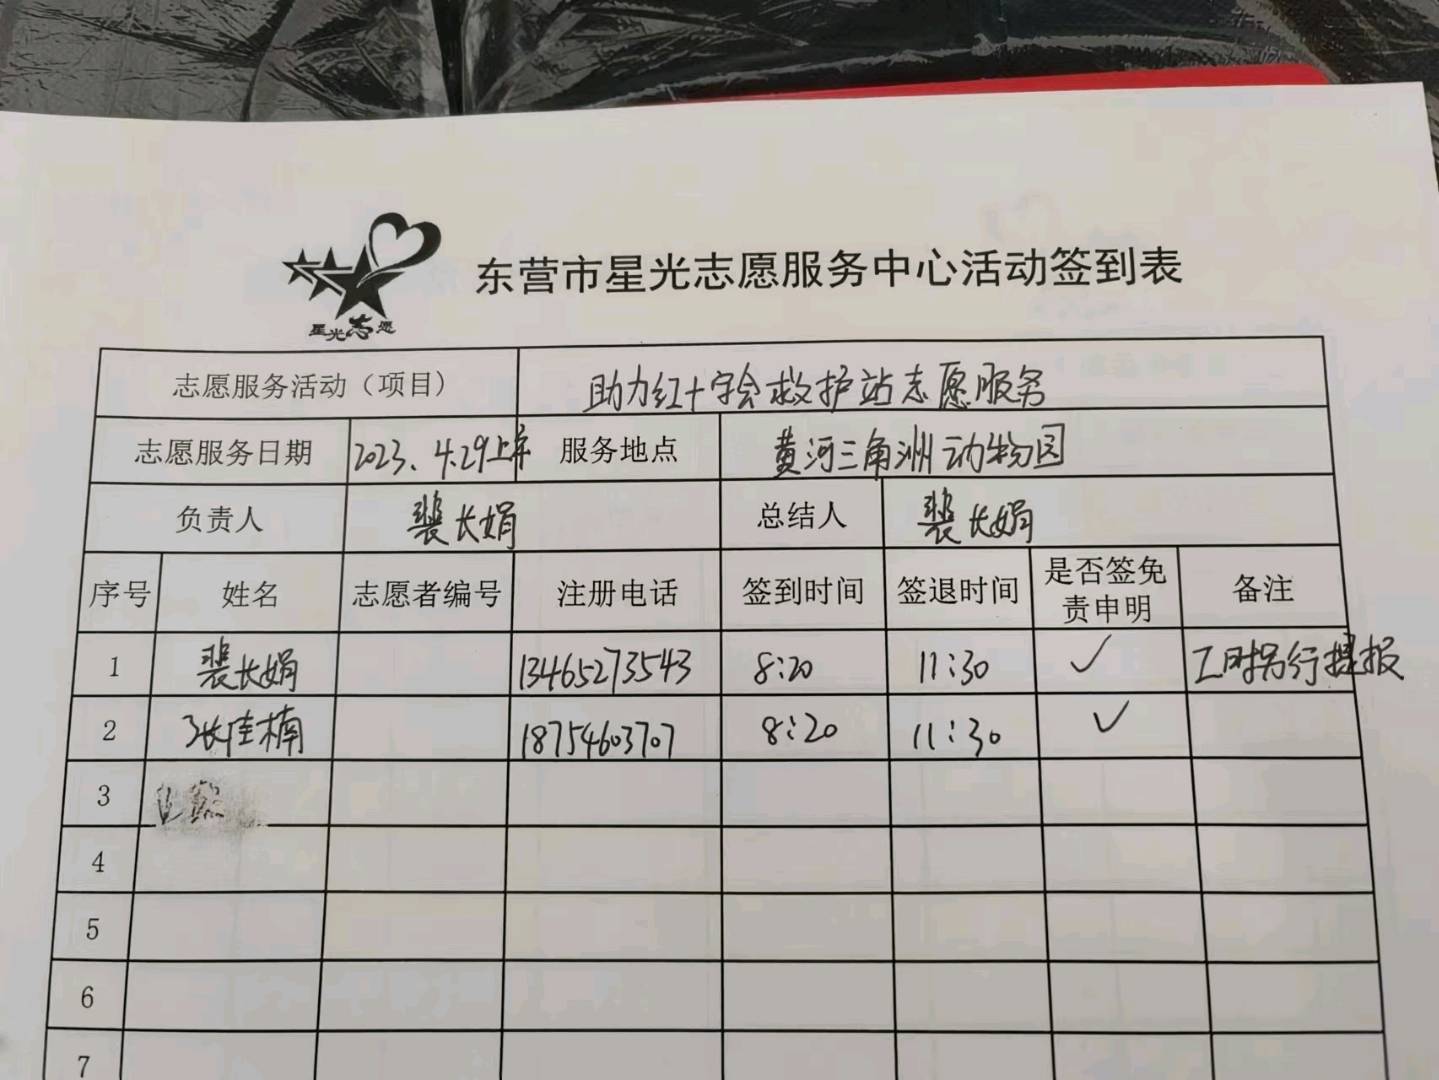 星光志愿
东营市星光志愿服务中心活动签到表
志愿服务活动（项目） 助力红十字会救护站志愿服务
志愿服务日期 2023.4.29上午 服务地点 黄河三角洲动物园
负责人 裴长娟 总结人 裴长娟
序号 姓名 志愿者编号 注册电话 签到时间 签退时间 是否签免责申明 备注
1 裴长娟 13465273543 8:20 11:30 ✓ 工时另行提报
2 张佳楠 18754603707 8:20 11:30 ✓
3
4
5
6
7